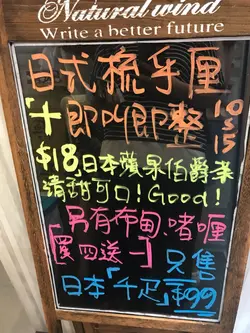 Natural wind
Write a better future
日式梳乎厘
「十即叫即整 10 s 15
$18日本蘋果伯爵茶
清甜可口!Good!
另有布甸、啫喱
買四送一 只售
日本「千疋 $99